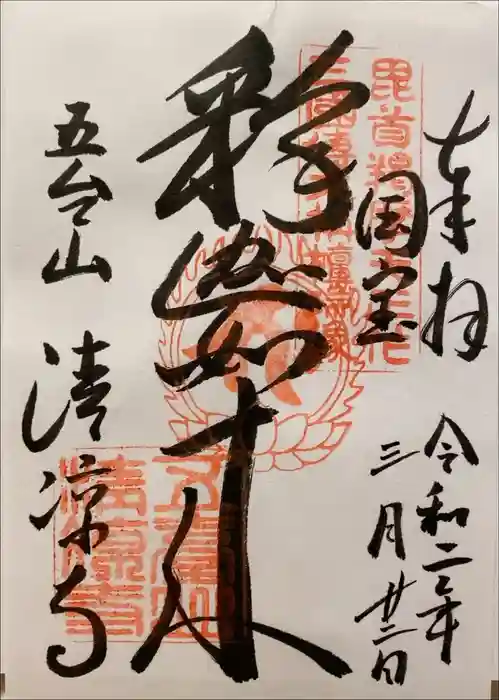 奉拝
国宝
令和二年
三月廿二日
釋迦如来
五台山 清凉寺
五臺山
清凉寺